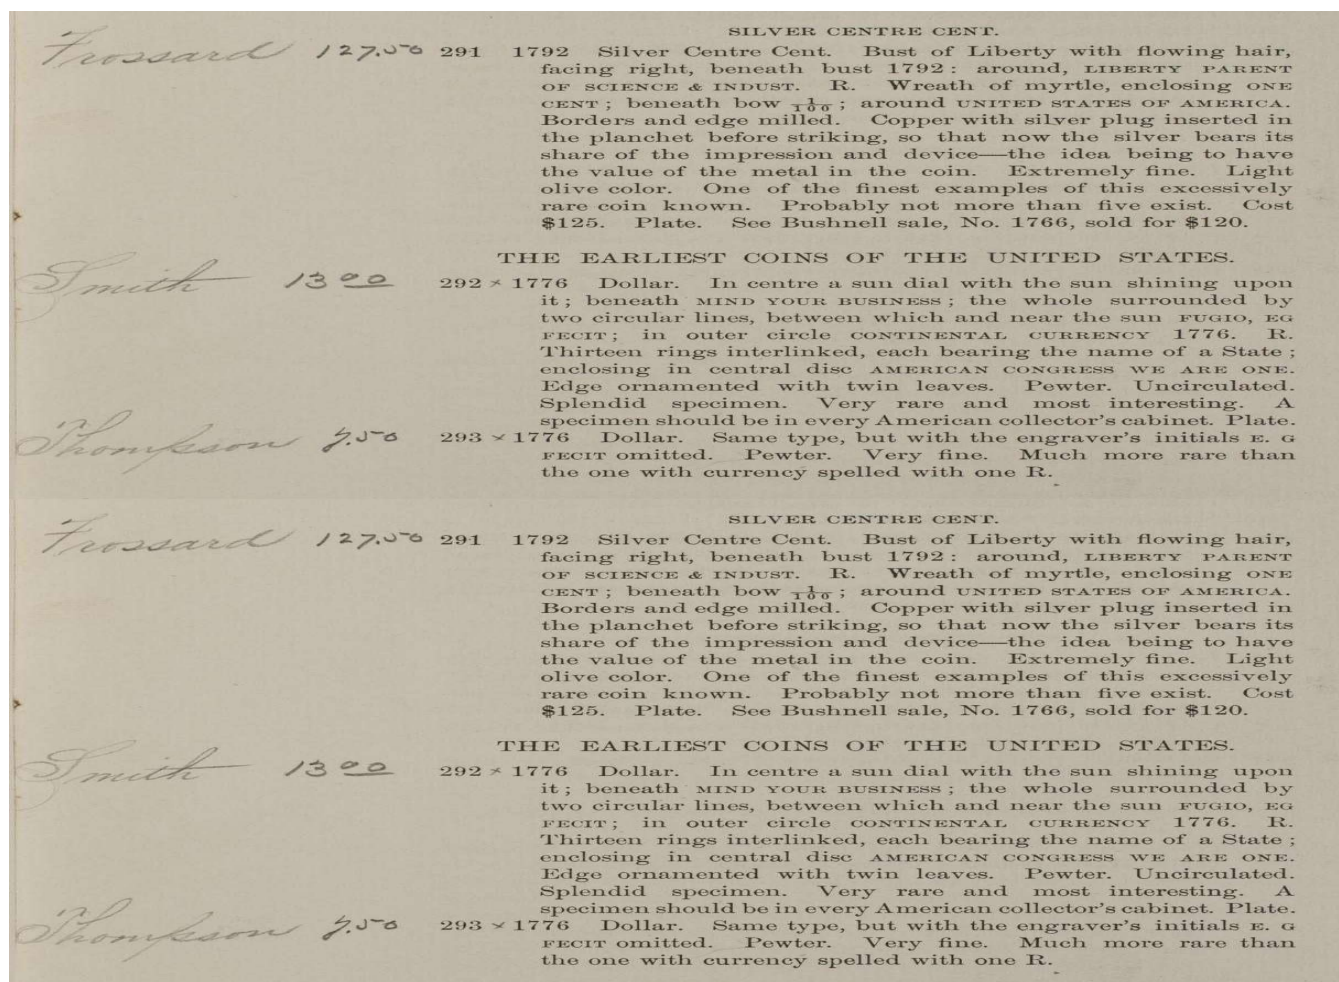 SILVER CENTRE CENT.
Frossard 127.50 291 1792 Silver Centre Cent. Bust of Liberty with flowing hair,
facing right, beneath bust 1792 : around, LIBERTY PARENT
OF SCIENCE & INDUST. R. Wreath of myrtle, enclosing ONE
CENT ; beneath bow 1/100 ; around UNITED STATES OF AMERICA.
Borders and edge milled. Copper with silver plug inserted in
the planchet before striking, so that now the silver bears its
share of the impression and device—the idea being to have
the value of the metal in the coin. Extremely fine. Light
olive color. One of the finest examples of this excessively
rare coin known. Probably not more than five exist. Cost
$125. Plate. See Bushnell sale, No. 1766, sold for $120.
THE EARLIEST COINS OF THE UNITED STATES.
Smith 13 00 292 × 1776 Dollar. In centre a sun dial with the sun shining upon
it ; beneath MIND YOUR BUSINESS ; the whole surrounded by
two circular lines, between which and near the sun FUGIO, EG
FECIT ; in outer circle CONTINENTAL CURRENCY 1776. R.
Thirteen rings interlinked, each bearing the name of a State ;
enclosing in central disc AMERICAN CONGRESS WE ARE ONE.
Edge ornamented with twin leaves. Pewter. Uncirculated.
Splendid specimen. Very rare and most interesting. A
specimen should be in every American collector's cabinet. Plate.
Thompson 7.50 293 × 1776 Dollar. Same type, but with the engraver's initials E. G
FECIT omitted. Pewter. Very fine. Much more rare than
the one with currency spelled with one R.
SILVER CENTRE CENT.
Frossard 127.50 291 1792 Silver Centre Cent. Bust of Liberty with flowing hair,
facing right, beneath bust 1792 : around, LIBERTY PARENT
OF SCIENCE & INDUST. R. Wreath of myrtle, enclosing ONE
CENT ; beneath bow 1/100 ; around UNITED STATES OF AMERICA.
Borders and edge milled. Copper with silver plug inserted in
the planchet before striking, so that now the silver bears its
share of the impression and device—the idea being to have
the value of the metal in the coin. Extremely fine. Light
olive color. One of the finest examples of this excessively
rare coin known. Probably not more than five exist. Cost
$125. Plate. See Bushnell sale, No. 1766, sold for $120.
THE EARLIEST COINS OF THE UNITED STATES.
Smith 13 00 292 × 1776 Dollar. In centre a sun dial with the sun shining upon
it ; beneath MIND YOUR BUSINESS ; the whole surrounded by
two circular lines, between which and near the sun FUGIO, EG
FECIT ; in outer circle CONTINENTAL CURRENCY 1776. R.
Thirteen rings interlinked, each bearing the name of a State ;
enclosing in central disc AMERICAN CONGRESS WE ARE ONE.
Edge ornamented with twin leaves. Pewter. Uncirculated.
Splendid specimen. Very rare and most interesting. A
specimen should be in every American collector's cabinet. Plate.
Thompson 7.50 293 × 1776 Dollar. Same type, but with the engraver's initials E. G
FECIT omitted. Pewter. Very fine. Much more rare than
the one with currency spelled with one R.